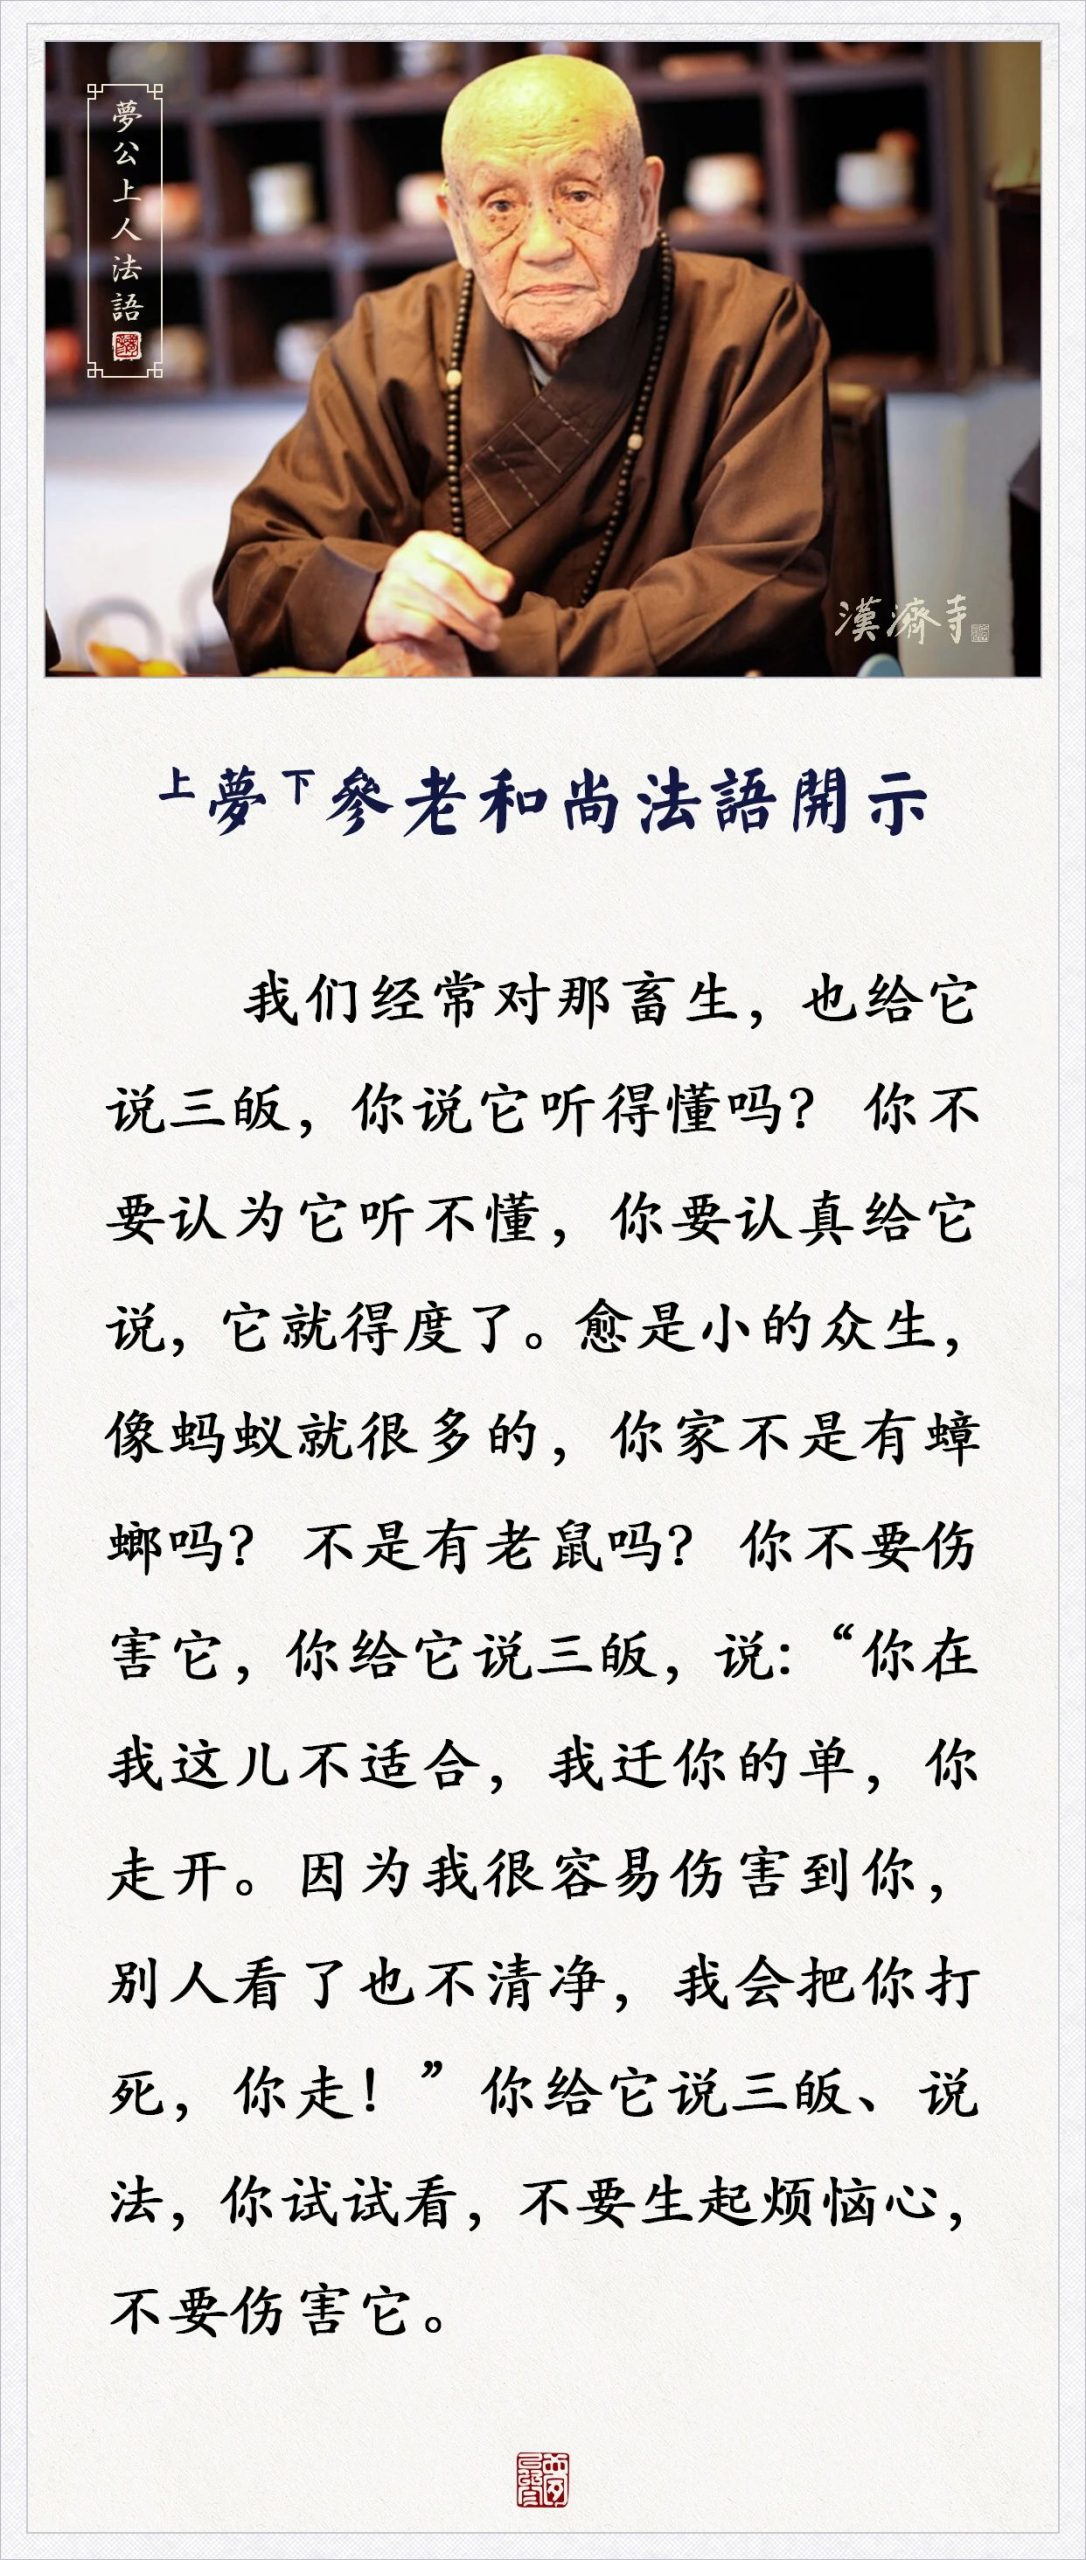 夢公上人法語
漢濟寺
上夢下參老和尚法語開示
我们经常对那畜生，也给它
说三皈，你说它听得懂吗？你不
要认为它听不懂，你要认真给它
说，它就得度了。愈是小的众生，
像蚂蚁就很多的，你家不是有蟑
螂吗？不是有老鼠吗？你不要伤
害它，你给它说三皈，说：“你在
我这儿不适合，我迁你的单，你
走开。因为我很容易伤害到你，
别人看了也不清净，我会把你打
死，你走！”你给它说三皈、说
法，你试试看，不要生起烦恼心，
不要伤害它。